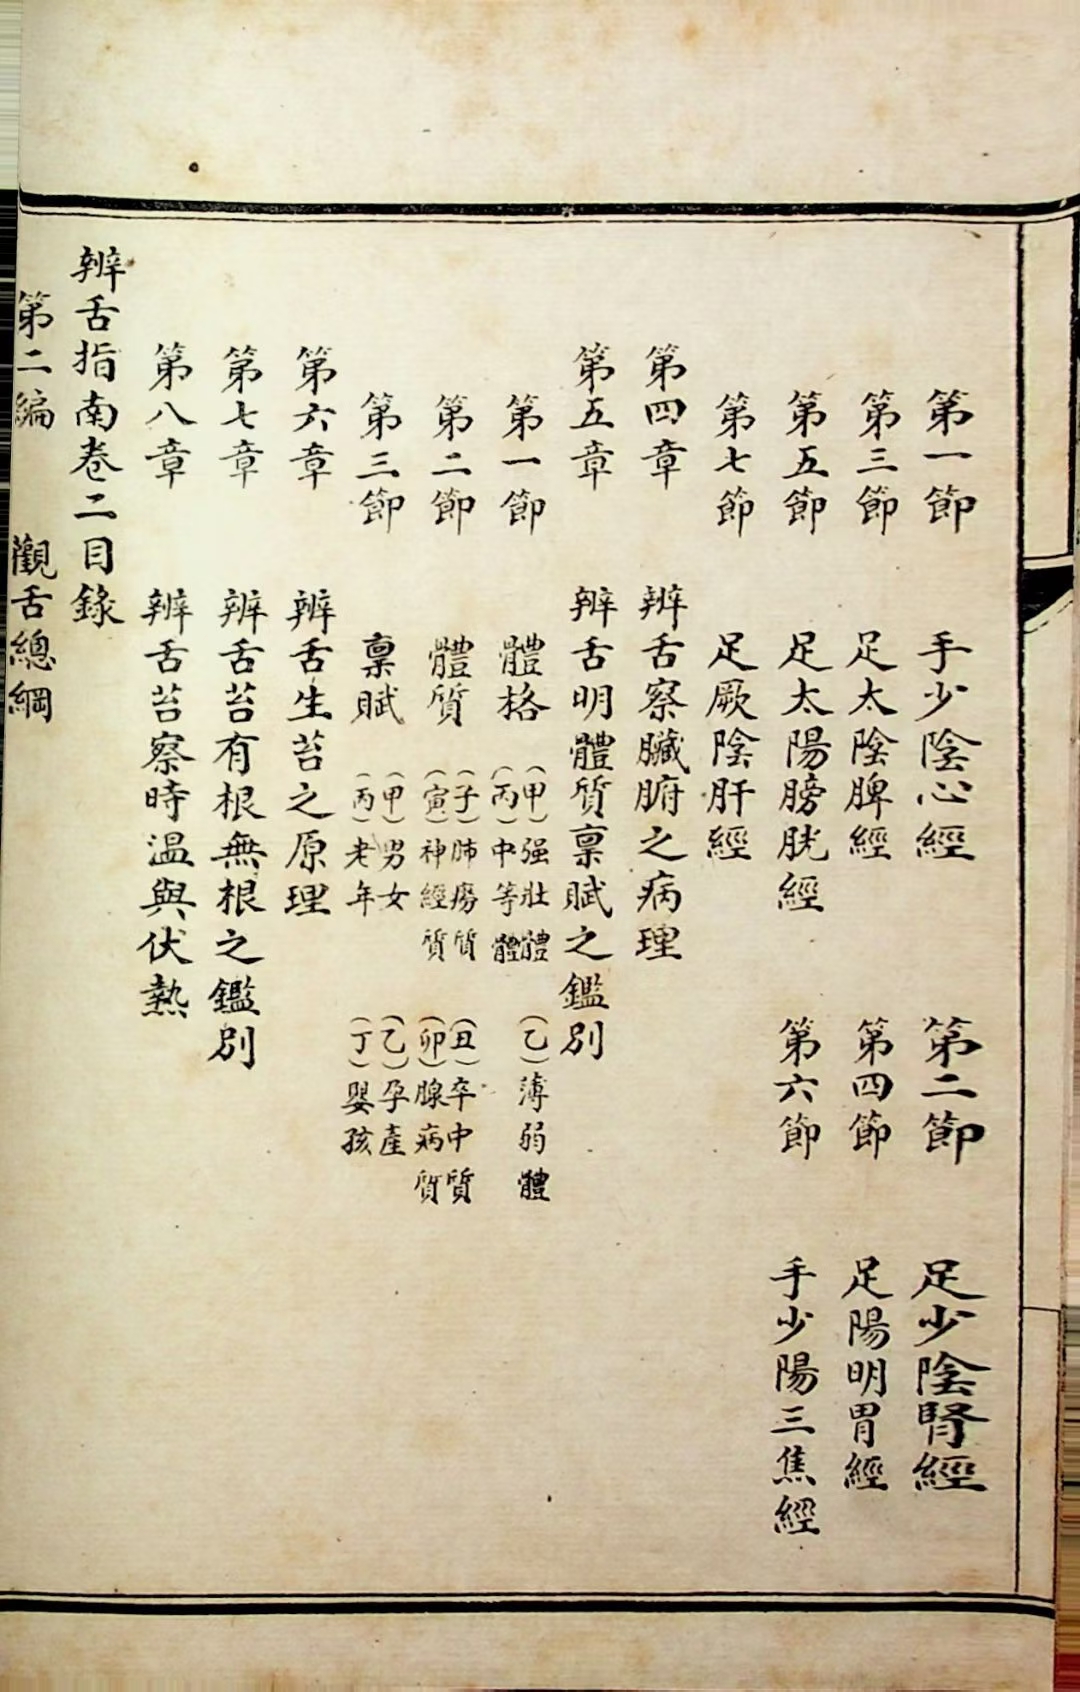 第一節　手少陰心經　第二節　足少陰腎經
第三節　足太陰脾經　第四節　足陽明胃經
第五節　足太陽膀胱經　第六節　手少陽三焦經
第七節　足厥陰肝經
第四章　辨舌察臟腑之病理
第五章　辨舌明體質稟賦之鑑別
第一節　體格　（甲）强壯體　（乙）薄弱體
（丙）中等體
第二節　體質　（子）肺癆質　（丑）卒中質
（寅）神經質　（卯）腺病質
第三節　稟賦　（甲）男女　（乙）孕產
（丙）老年　（丁）嬰孩
第六章　辨舌生苔之原理
第七章　辨舌苔有根無根之鑑別
第八章　辨舌苔察時温與伏熱
辨舌指南卷二目錄
第二編　觀舌總綱